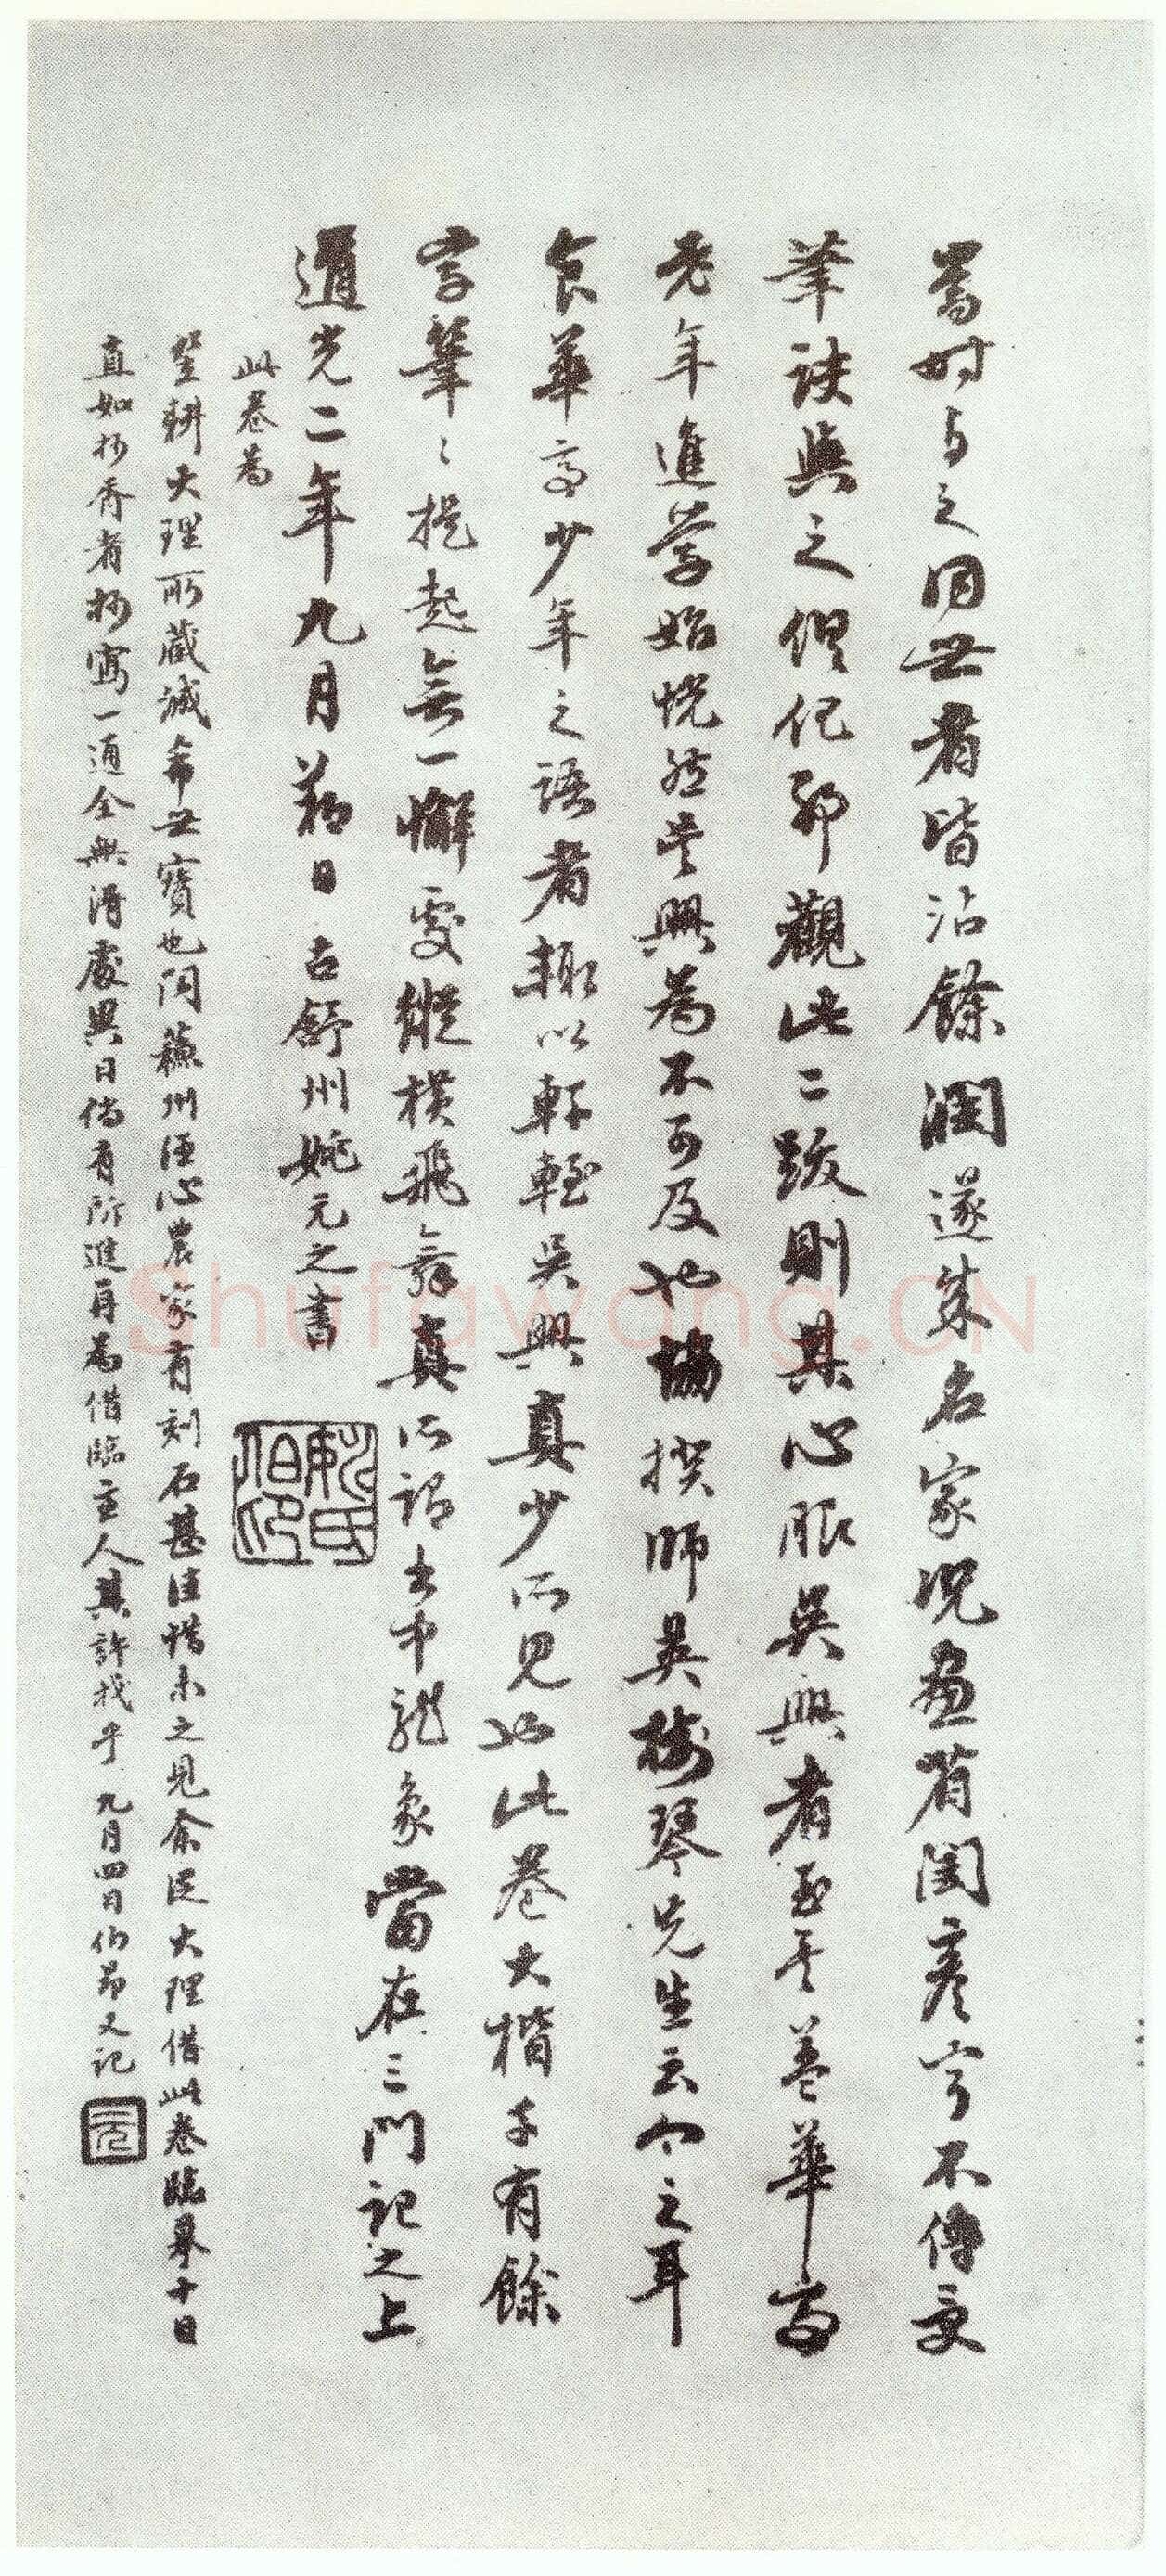 當時与之同世者皆沾餘潤遂成名家況盡有聞彥亨不傳受
筆訣與之俚伲耶觀此二跋則其心服吳興者至矣董華亭
老年進學始恍然吳興為不可及也協揆師英樹琴先生云今之耳
食華亭少年之語者輒以軒輊吳興真少所見也此卷大楷字有餘
字筆〻提起無一懈處縱橫飛舞真所謂書中龍象當在三門記之上
道光二年九月前日古舒州姚元之書
此卷為
筠耕大理所藏誠希世寶也聞蘇州汪心農家有刻石甚佳惜未之見余從大理借此卷臨摹十日
直如抄胥者抄寫一通全無得處異日倘有所進再為借臨主人其許我乎 九月四日伯昂又記
姚氏伯印
元
Shufawang.CN